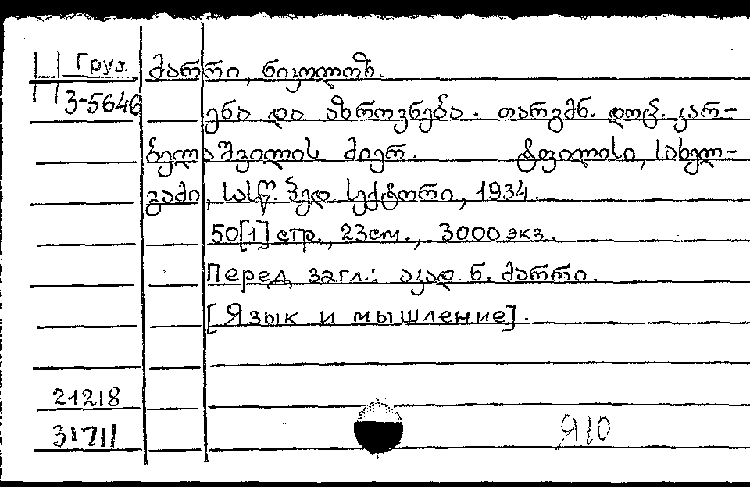 Груз. მარრი, ნიკოლოზ.
3-5646
ენა და აზროვნება. თარგმნ. დოც. კარ-
ბელაშვილის მიერ. ტფილისი, სახელ-
გამი, სასწ. პედ. სექტორი, 1934
50[1] стр., 23 см., 3000 экз.
Перед загл.: აკად. ნ. მარრი.
[Язык и мышление].
21218
31711
Я10